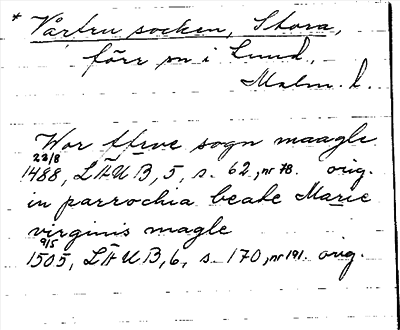 * Vårfru socken, Stora,
förr sn i Lund,
Malm. l.
Wor ffrwe sogn maagle
23/8
1488, LÄUB, 5, s. 62, nr 78. orig.
in parrochia beate Marie
virginis magle
9/5
1505, LÄUB, 6, s. 170, nr 191. orig.